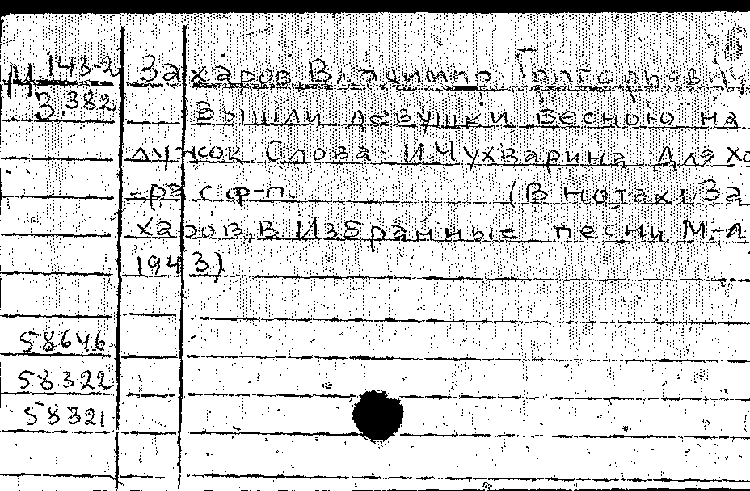 М 143-2 Захаров Владимир Григорьевич
3.382 Вышли девушки весною на
лужок Слова И.Чухварина Для хо
-ра с ф-п. (В нотах: За
харов,В Избранные песни М.-Л
1943)
58646
58322
58321